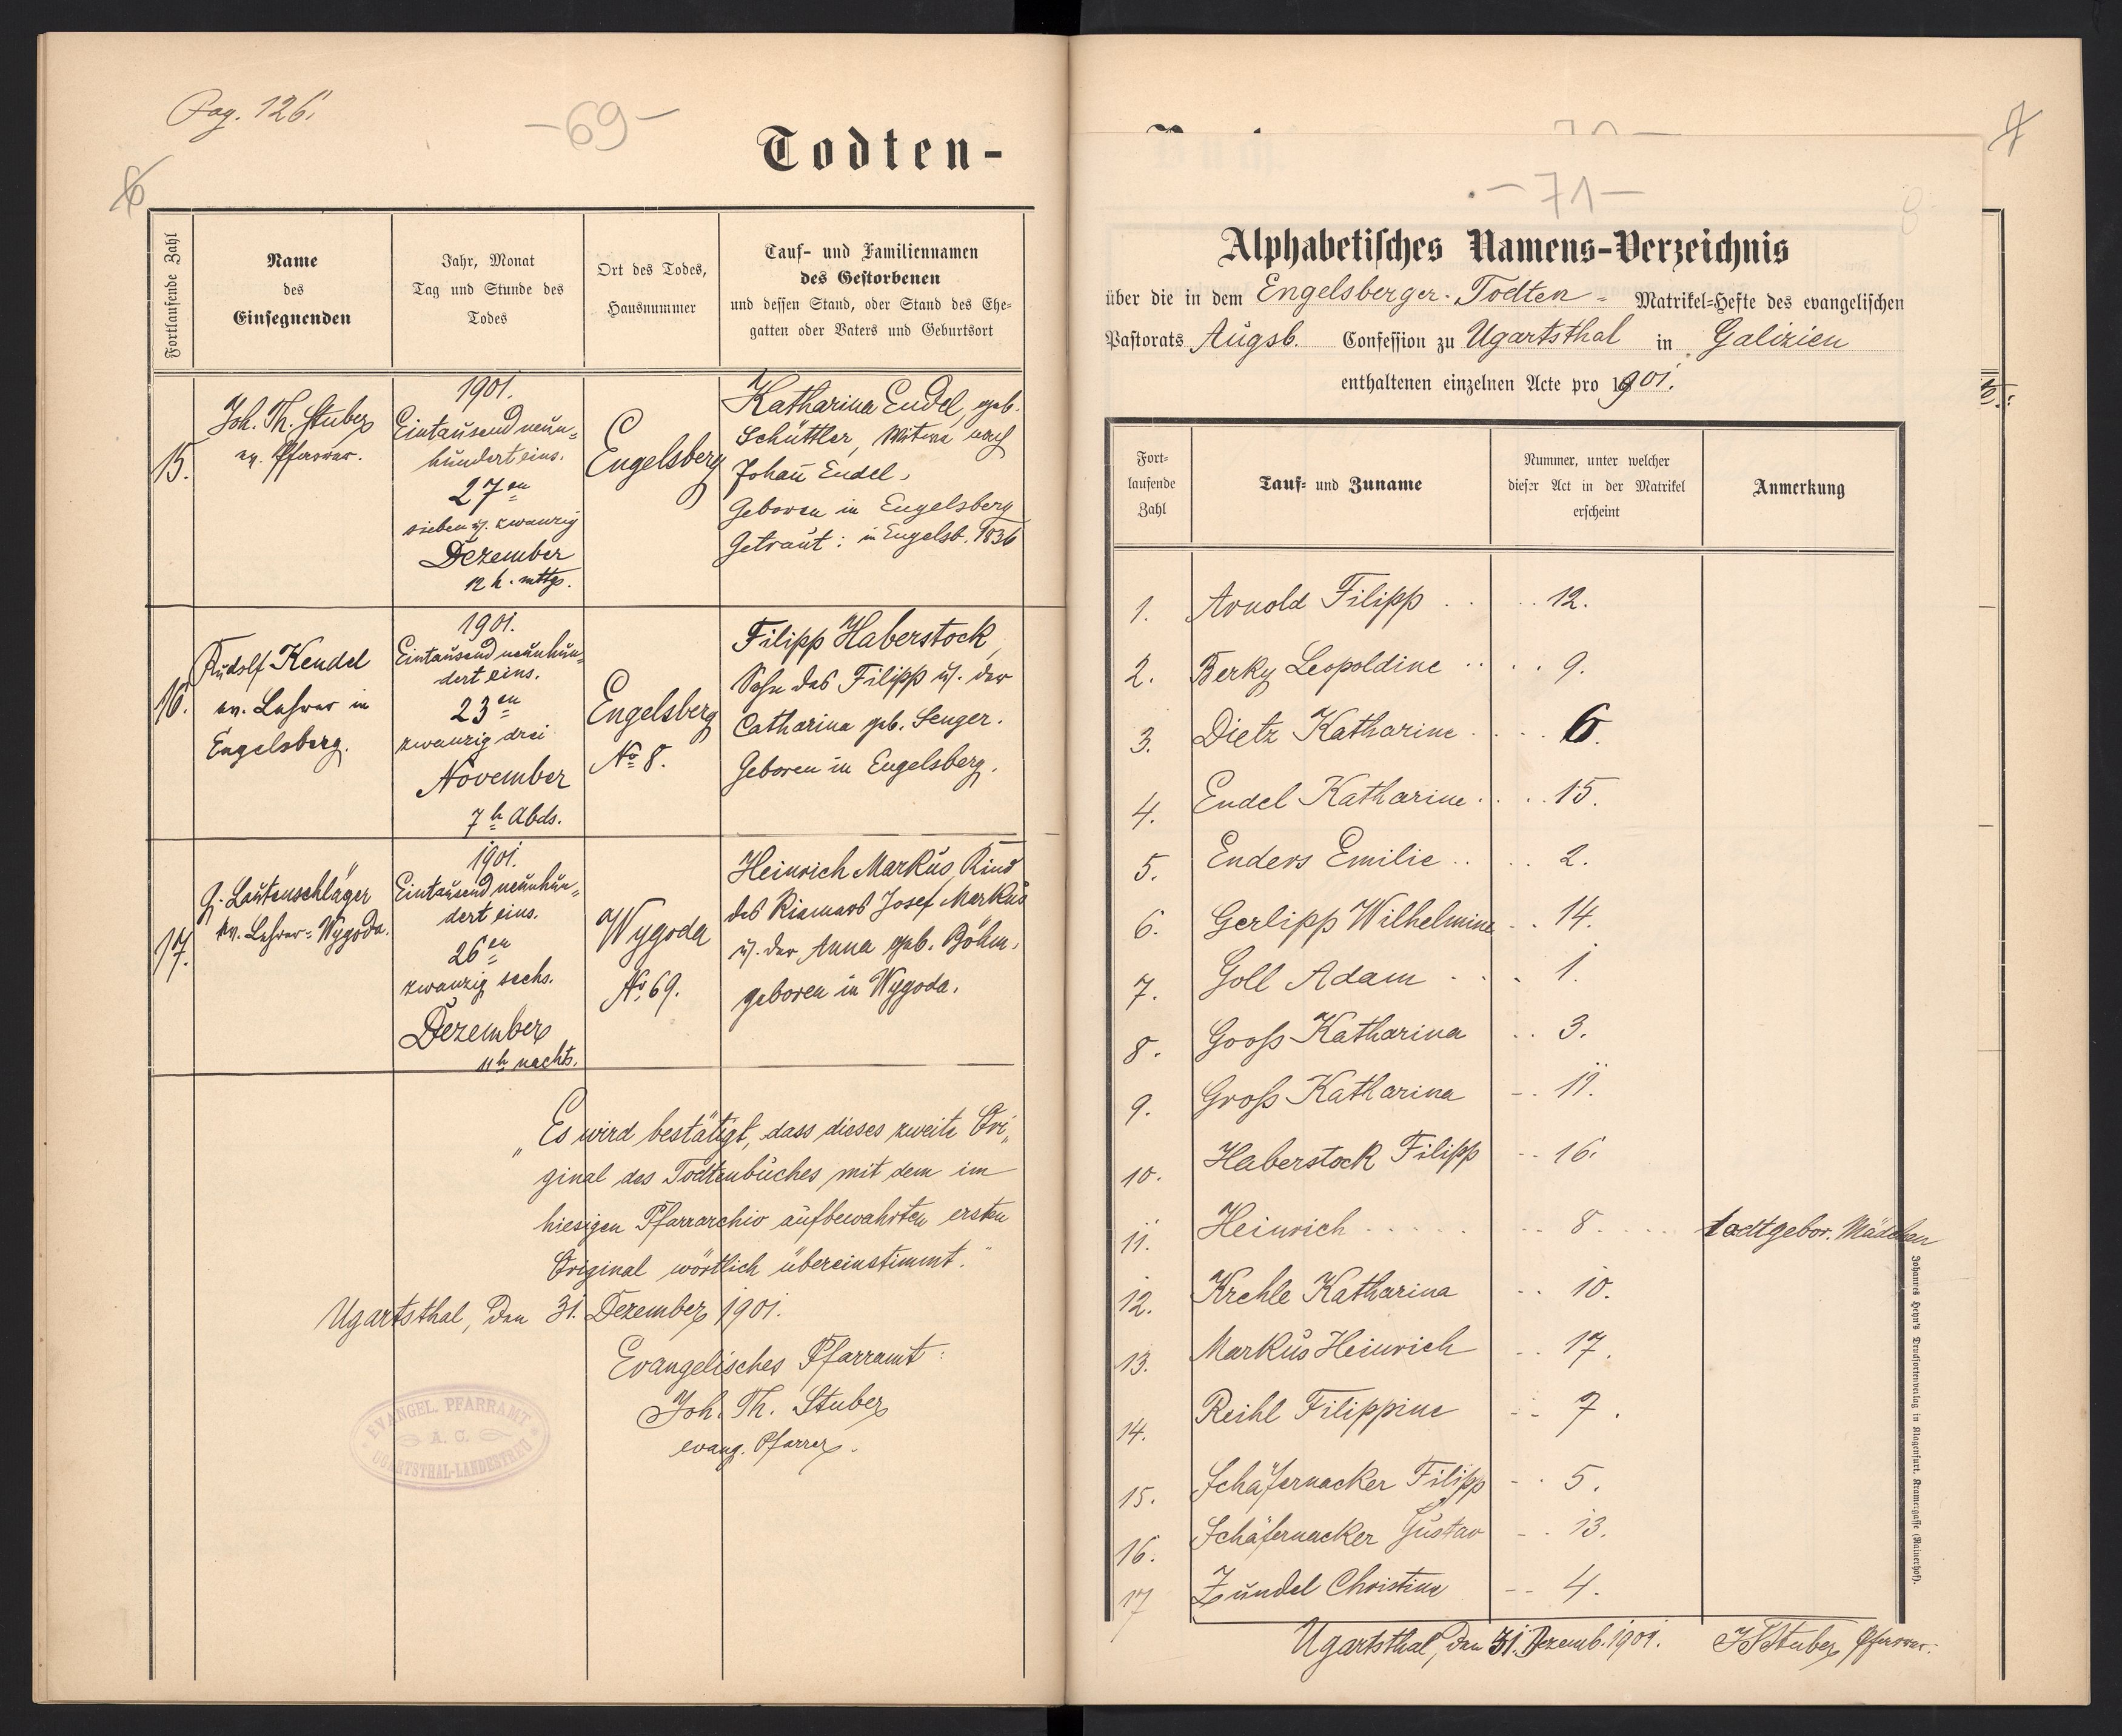 Pag. 126.
-69-
6
Todten-
Fortlaufende Zahl
Name
des
Einsegnenden
Jahr, Monat
Tag und Stunde des
Todes
Ort des Todes,
Hausnummer
Tauf- und Familiennamen
des Gestorbenen
und dessen Stand, oder Stand des Ehe-
gatten oder Vaters und Geburtsort
15.
Joh. Th. Stuber
ev. Pfarrer.
1901.
Eintausend neun-
hundert eins.
27en
sieben u. zwanzig
Dezember
12 h. mttgs.
Engelsberg
Katharina Endel, geb.
Schüttler, Witwe nach
Johañ Endel,
Geboren in Engelsberg
Getraut: in Engelsb. 1836
16.
Rudolf Kendel
ev. Lehrer in
Engelsberg.
1901.
Eintausend neunhun-
dert eins.
23en
zwanzig drei
November
7 h Abds.
Engelsberg
No 8.
Filipp Haberstock,
Sohn des Filipp u. der
Catharina geb. Senger.
Geboren in Engelsberg.
17.
Lautenschläger
ev. Lehrer-Wygoda.
1901.
Eintausend neunhun-
dert eins.
26en
zwanzig sechs.
Dezember
11 h nachts.
Wygoda
No 69.
Heinrich Markus, Kind
des Riemers Josef Markus
u. der Anna geb. Böhm,
geboren in Wygoda.
„Es wird bestätigt, dass dieses zweite Ori-
ginal des Todtenbuches mit dem im
hiesigen Pfarrarchiv aufbewahrten ersten
Original wörtlich übereinstimmt."
Ugartsthal, den 31. Dezember 1901.
Evangelisches Pfarramt:
Joh. Th. Stuber
evang. Pfarrer.
EVANGEL. PFARRAMT
A. C.
UGARTSTHAL-LANDESTREU
-71-
8
Alphabetisches Namens-Verzeichnis
über die in dem Engelsberger-Todten- Matrikel-Hefte des evangelischen
Pastorats Augsb. Confession zu Ugartsthal in Galizien
enthaltenen einzelnen Acte pro 1901.
Fort-
laufende
Zahl
Tauf- und Zuname
Nummer, unter welcher
dieser Act in der Matrikel
erscheint
Anmerkung
1. Arnold Filipp . . . . 12.
2. Berky Leopoldine . . . . 9.
3. Dietz Katharine . . . . 6.
4. Endel Katharine . . . 15.
5. Enders Emilie . . . . 2.
6. Gerlipp Wilhelmine . . 14.
7. Goll Adam . . . 1.
8. Gooß Katharina . . 3.
9. Groß Katharina - . 11.
10. Haberstock Filipp - - 16.
11. Heinrich . . . . . - - 8 . . . . todtgebor. Mädchen
12. Krehle Katharina - - 10.
13. Markus Heinrich . . 17.
14. Reihl Filippine - - 7.
15. Schäfernacker Filipp - . 5.
16. Schäfernacker Gustav - . 13.
17 Zundel Christine - - 4.
Ugartsthal, den 31. Dezemb. 1901. JTStuber, Pfarrer.
Johannes Heyn's Drucksortenverlag in Klagenfurt, Kramergasse (Rainerhof).